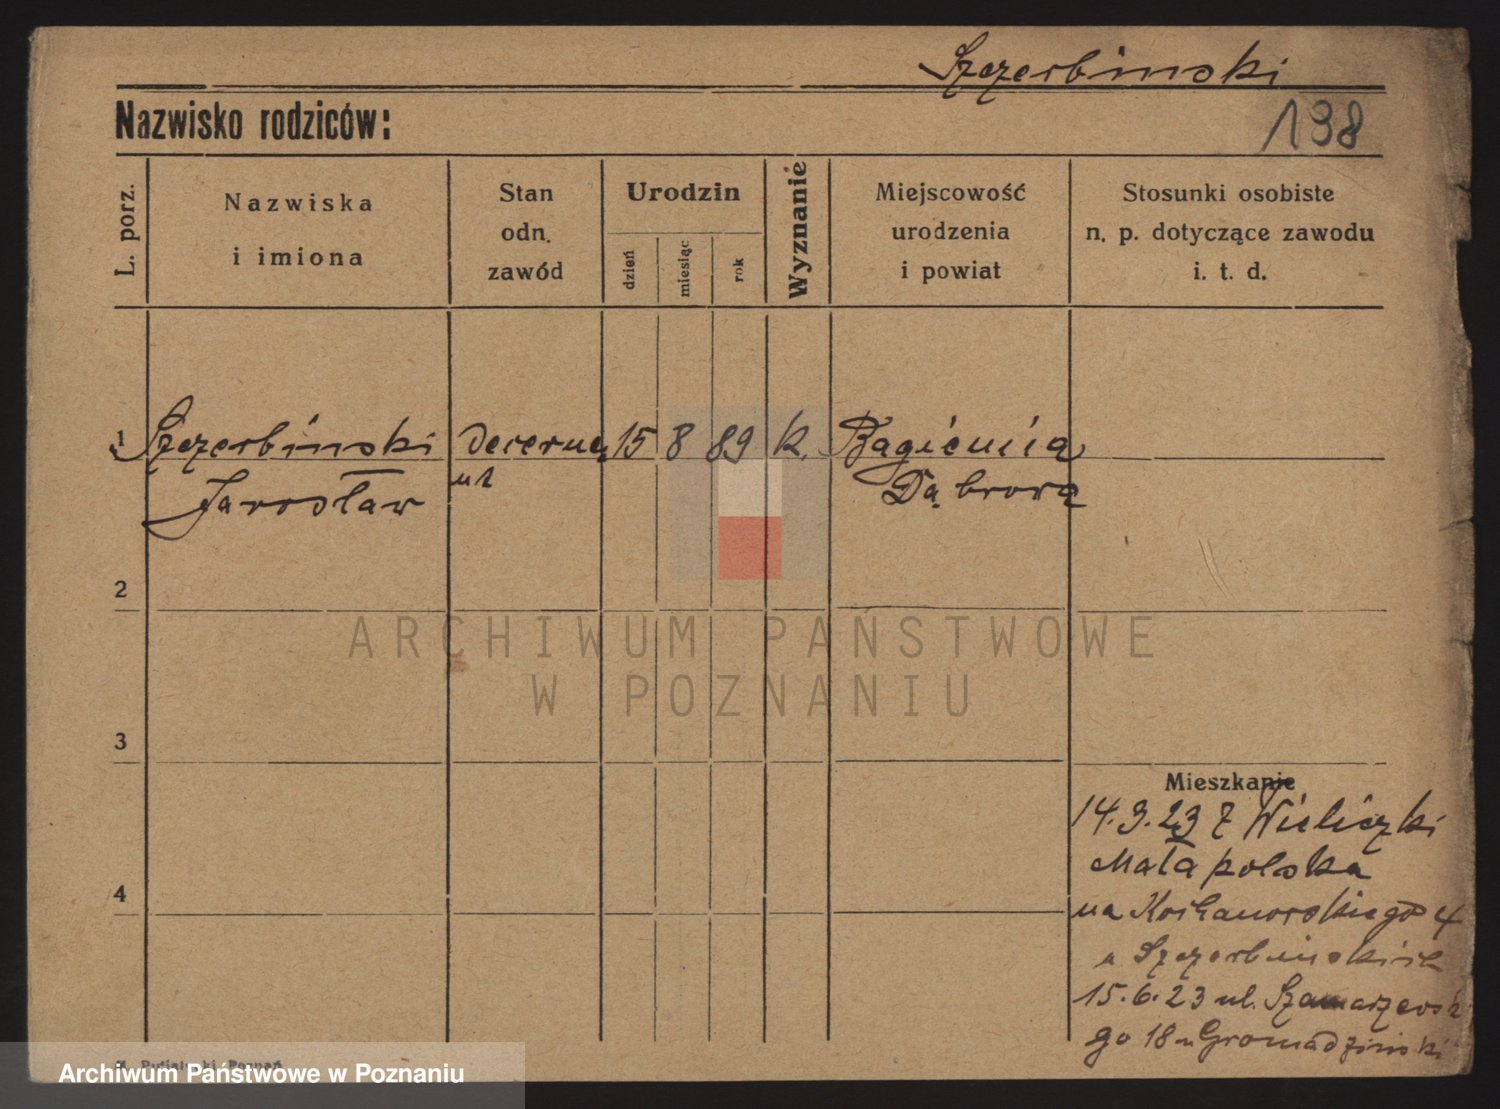 Szczerbinski
Nazwisko rodziców:
138
L. porz.
Nazwiska
i imiona
Stan
odn.
zawód
Urodzin
dzień
miesiąc
rok
Wyznanie
Miejscowość
urodzenia
i powiat
Stosunki osobiste
n. p. dotyczące zawodu
i. t. d.
1 Szczerbinski decerne 15 8 89 k. Bagienia
Jarosław nt Dąbrowa
2
ARCHIWUM PAŃSTWOWE
W POZNANIU
3
Mieszkanie
14.3.23 z Wieliczki
Małapolska
4
na Kochanowskiego 4
u Szczerbinskich
15.6.23 ul. Szamarzewsk
go 18 u Gromadzinski
Poznań
Archiwum Państwowe w Poznaniu